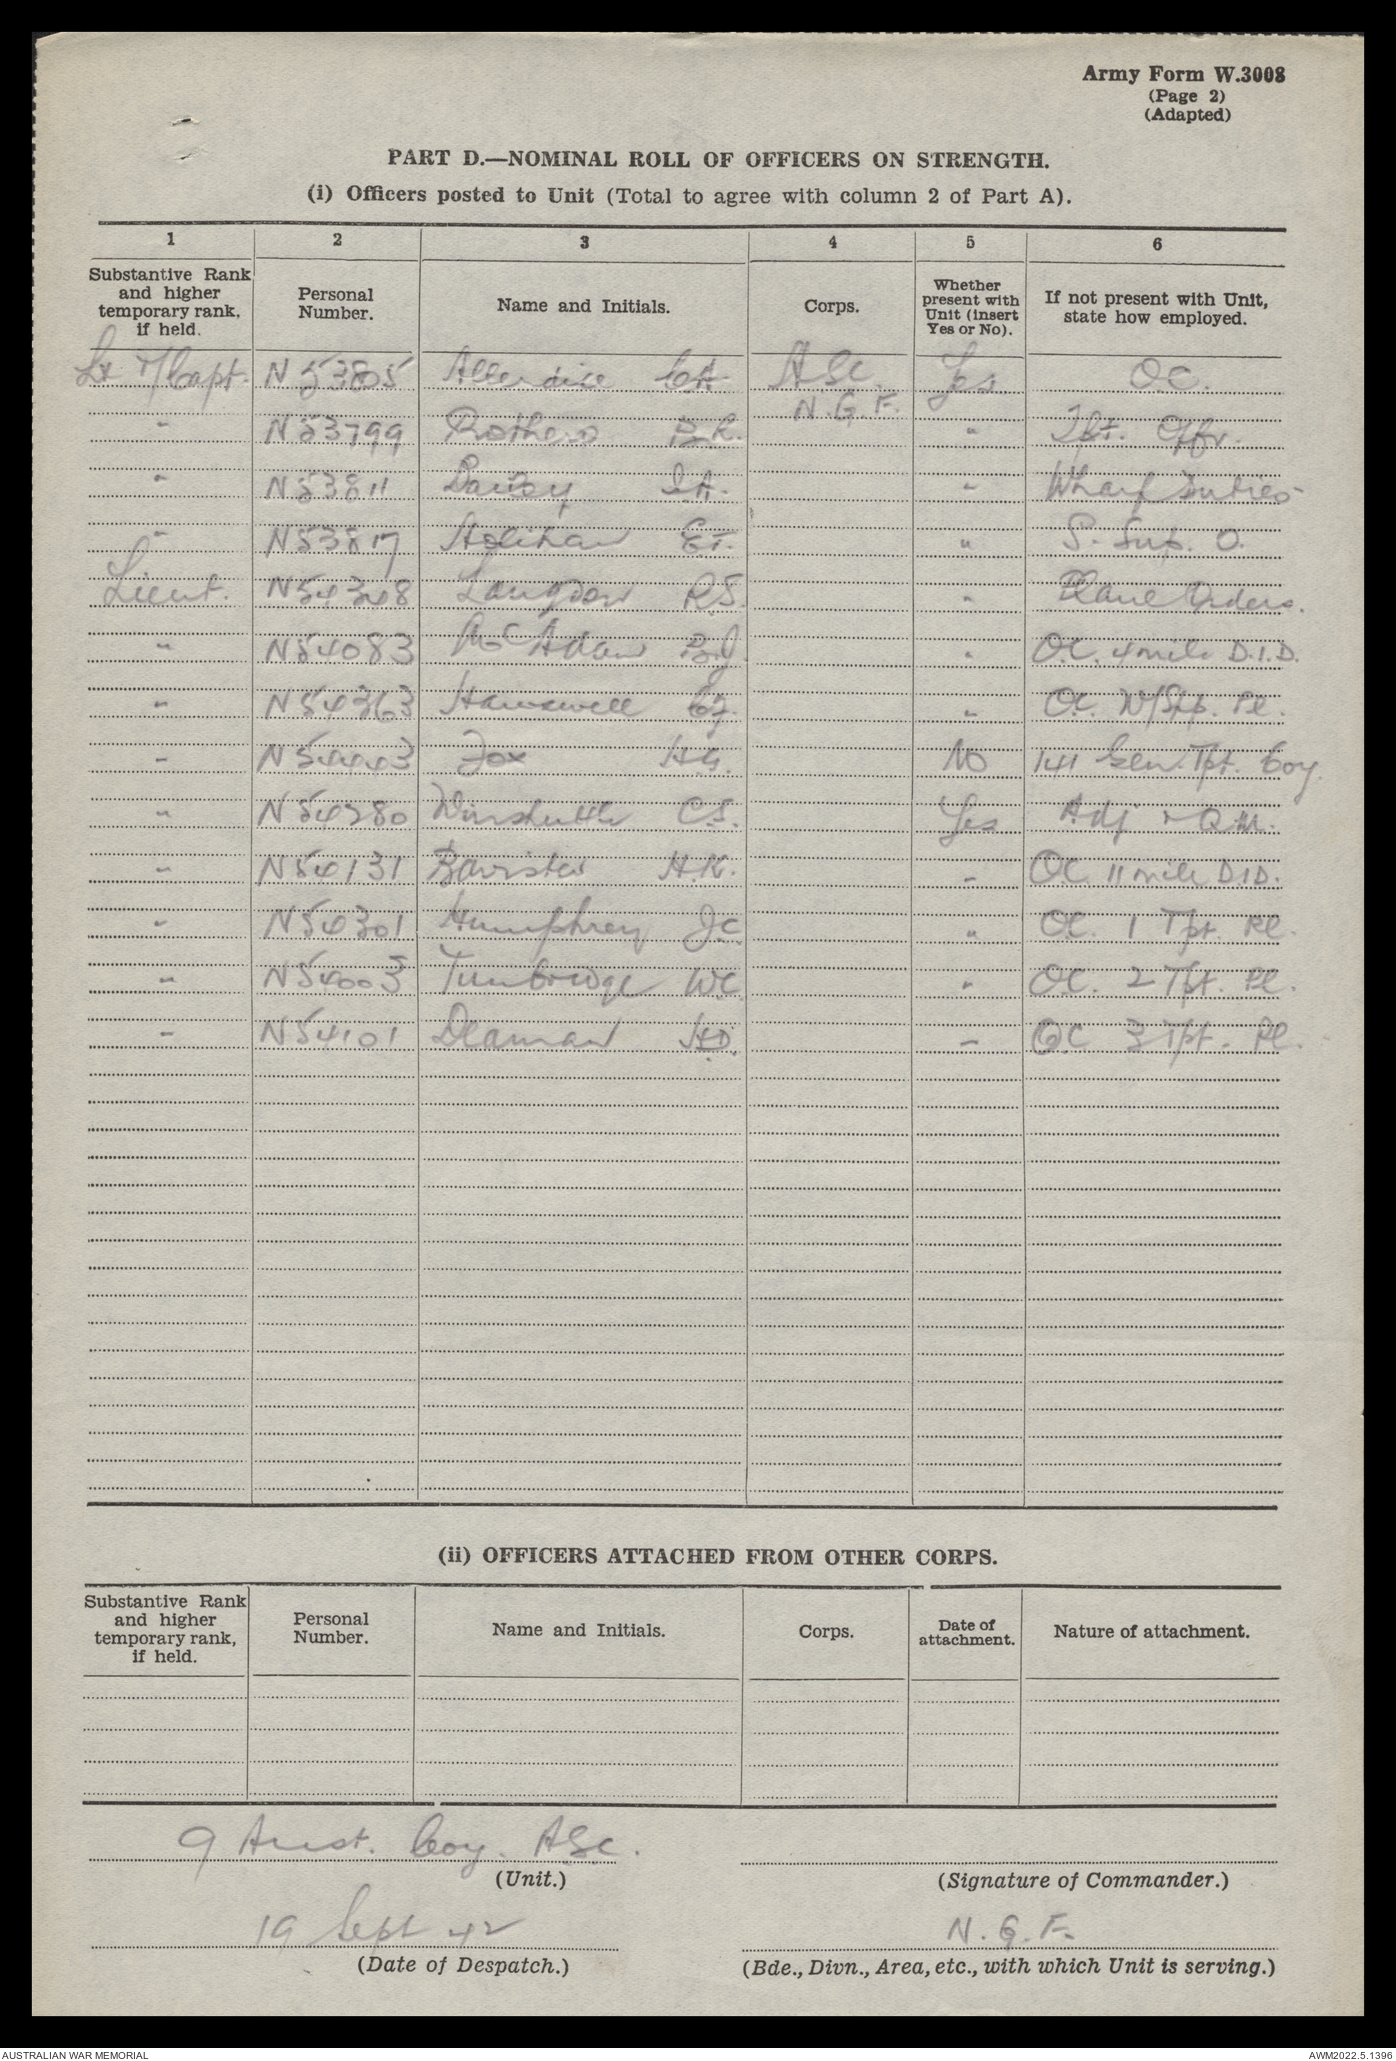 Army Form W.3008
(Page 2)
(Adapted)
PART D.—NOMINAL ROLL OF OFFICERS ON STRENGTH.
(i) Officers posted to Unit (Total to agree with column 2 of Part A).
1 2 3 4 5 6
Substantive Rank and higher temporary rank, if held. Personal Number. Name and Initials. Corps. Whether present with Unit (insert Yes or No). If not present with Unit, state how employed.
Lt T/Capt. N 53805 Allerdice CA. ASC. Yes OC.
N.G.F.
" N53799 Rothero B.R. " Tpt. Offr.
" N53811 I.A. " Wharf Duties
" N53817 Holihan E.T. " S. Sup. O.
Lieut. N54348 Langdon R.S. " Orders.
" N54083 McAdam B.J. " OC. 4 mile D.I.D.
" N54363 " OC. W/Shp. Pl.
- N54443 Fox H.G. No 141 Gen. Tpt. Coy.
" N54280 Winshuttle C.S. Yes Adj & QM.
" N54131 H.K. - OC 11 mile D.I.D.
" N54301 Humphrey J.C " OC. 1 Tpt. Pl.
" N54003 Tunbridge W.C. " OC. 2 Tpt. Pl.
- N54101 Deaman H.D. - OC 3 Tpt. Pl.
(ii) OFFICERS ATTACHED FROM OTHER CORPS.
Substantive Rank and higher temporary rank, if held. Personal Number. Name and Initials. Corps. Date of attachment. Nature of attachment.
9 Aust. Coy. ASC.
(Unit.) (Signature of Commander.)
19 Sept 42 N.G.F.
(Date of Despatch.) (Bde., Divn., Area, etc., with which Unit is serving.)
AUSTRALIAN WAR MEMORIAL AWM2022.5.1396